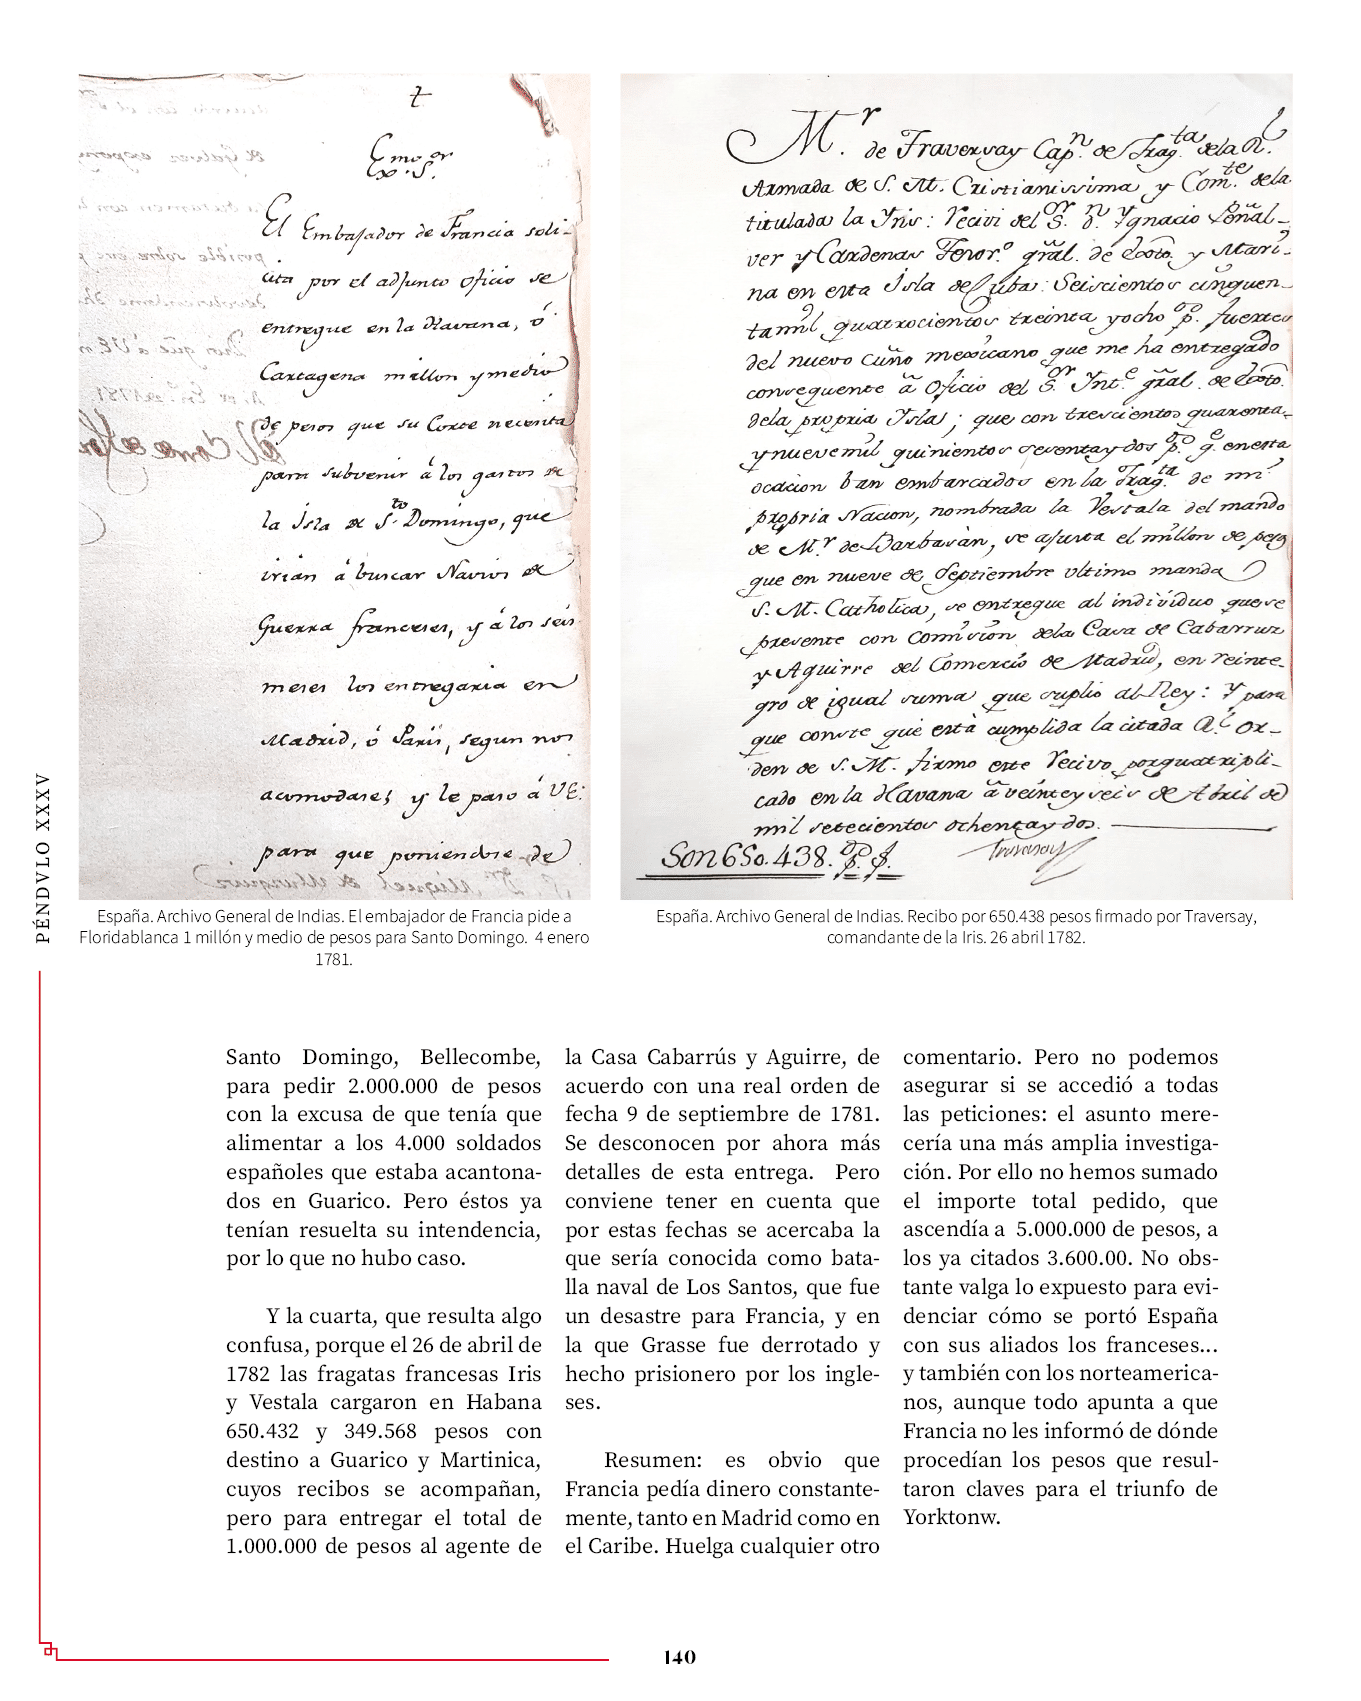 t
Exmo. Sor.
El Embajador de Francia soli-
cita por el adjunto oficio se
entregue en la Havana, ó
Cartagena millon y medio
de pesos que su Corte necesita
para subvenir á los gastos de
la Isla de Sto. Domingo, que
irián á buscar Navios de
Guerra franceses, y á los seis
meses los entregaria en
Madrid, ó Paris, segun nos
acomodase; y le paso á VE.
para que poniendose de
Mr. de Traversay Capn. de Fragta. de la Rl.
Armada de S. M. Cristianissima y Comte. de la
titulada la Yris: Recivi del Sor. Dn. Ygnacio Peñal-
ver y Cardenas Tesorº. gral. de Exto. y Mari-
na en esta Isla de Cuba: Seiscientos cinquen-
ta mil quatrocientos treinta y ocho ps. fuertes
del nuevo cuño mexicano que me ha entregado
consequente a Oficio del Sor. Inte. gral. de Exto.
de la propria Ysla; que con trescientos quarenta
y nueve mil quinientos sesenta y dos ps. qe. en esta
ocacion ban embarcados en la Fragta. de mi
propria Nacion, nombrada la Vestala del mando
de Mr. de Barbasàn, se ajusta el millon de pesos
que en nueve de Septiembre ultimo manda
S. M. Catholica, se entregue al individuo que se
presente con Comision de la Casa de Cabarrus
y Aguirre del Comercio de Madrid, en reinte-
gro de igual suma que suplio al Rey: Y para
que conste que està cumplida la citada Rl. Or-
den de S. M. firmo este recivo por quatripli-
cado en la Havana a veinte y seis de Abril de
mil setecientos ochenta y dos.
Son 650.438. ps. fs.
Traversay
España. Archivo General de Indias. El embajador de Francia pide a
Floridablanca 1 millón y medio de pesos para Santo Domingo. 4 enero
1781.
España. Archivo General de Indias. Recibo por 650.438 pesos firmado por Traversay,
comandante de la Iris. 26 abril 1782.
PÉNDVLO XXXV
Santo Domingo, Bellecombe,
para pedir 2.000.000 de pesos
con la excusa de que tenía que
alimentar a los 4.000 soldados
españoles que estaba acantona-
dos en Guarico. Pero éstos ya
tenían resuelta su intendencia,
por lo que no hubo caso.
Y la cuarta, que resulta algo
confusa, porque el 26 de abril de
1782 las fragatas francesas Iris
y Vestala cargaron en Habana
650.432 y 349.568 pesos con
destino a Guarico y Martinica,
cuyos recibos se acompañan,
pero para entregar el total de
1.000.000 de pesos al agente de
la Casa Cabarrús y Aguirre, de
acuerdo con una real orden de
fecha 9 de septiembre de 1781.
Se desconocen por ahora más
detalles de esta entrega. Pero
conviene tener en cuenta que
por estas fechas se acercaba la
que sería conocida como bata-
lla naval de Los Santos, que fue
un desastre para Francia, y en
la que Grasse fue derrotado y
hecho prisionero por los ingle-
ses.
Resumen: es obvio que
Francia pedía dinero constante-
mente, tanto en Madrid como en
el Caribe. Huelga cualquier otro
comentario. Pero no podemos
asegurar si se accedió a todas
las peticiones: el asunto mere-
cería una más amplia investiga-
ción. Por ello no hemos sumado
el importe total pedido, que
ascendía a 5.000.000 de pesos, a
los ya citados 3.600.00. No obs-
tante valga lo expuesto para evi-
denciar cómo se portó España
con sus aliados los franceses...
y también con los norteamerica-
nos, aunque todo apunta a que
Francia no les informó de dónde
procedían los pesos que resul-
taron claves para el triunfo de
Yorktonw.
140